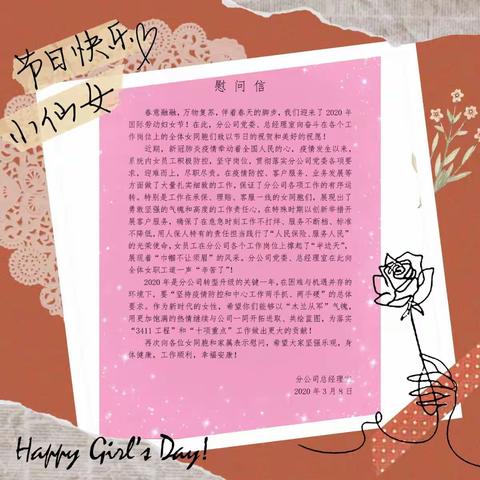 节日快乐
小仙女
慰问信
春意融融，万物复苏，伴着春天的脚步，我们迎来了 2020 年
国际劳动妇女节！在此，分公司党委、总经理室向奋斗在各个工
作岗位上的全体女同胞们致以节日的祝贺和美好的祝愿！
近期，新冠肺炎疫情牵动着全国人民的心，疫情发生以来，
系统内女员工积极防控，坚守岗位，贯彻落实分公司党委各项要
求，迎难而上，尽职尽责。在疫情防控、客户服务、业务发展等
方面做了大量扎实细致的工作，保证了分公司各项工作的有序运
转。特别是工作在承保、理赔、客服一线的女同胞们，展现出了
勇敢坚强的气魄和高度的工作责任心，在特殊时期以创新举措开
展客户服务，确保了在危急时刻工作不打烊、服务不断档、标准
不降低，用人保人特有的责任担当践行了“人民保险，服务人民”
的光荣使命，女员工在分公司各个工作岗位上撑起了“半边天”，
展现着“巾帼不让须眉”的风采。分公司党委、总经理室在此向
全体女职工道一声“辛苦了”！
2020 年是分公司转型升级的关键一年，在困难与机遇并存的
环境下，要“坚持疫情防控和中心工作两手抓、两手硬”的总体
要求。作为新时代的女性，希望你们能够以“木兰从军”气魄，
用更加饱满的热情继续与公司一同开拓进取、共绘蓝图，为落实
“3411 工程”和“十项重点”工作做出更大的贡献！
再次向各位女同胞和家属表示慰问，希望大家坚强乐观，身
体健康，工作顺利，幸福安康！
分公司总经理室
2020 年 3 月 8 日
Happy Girl's Day!